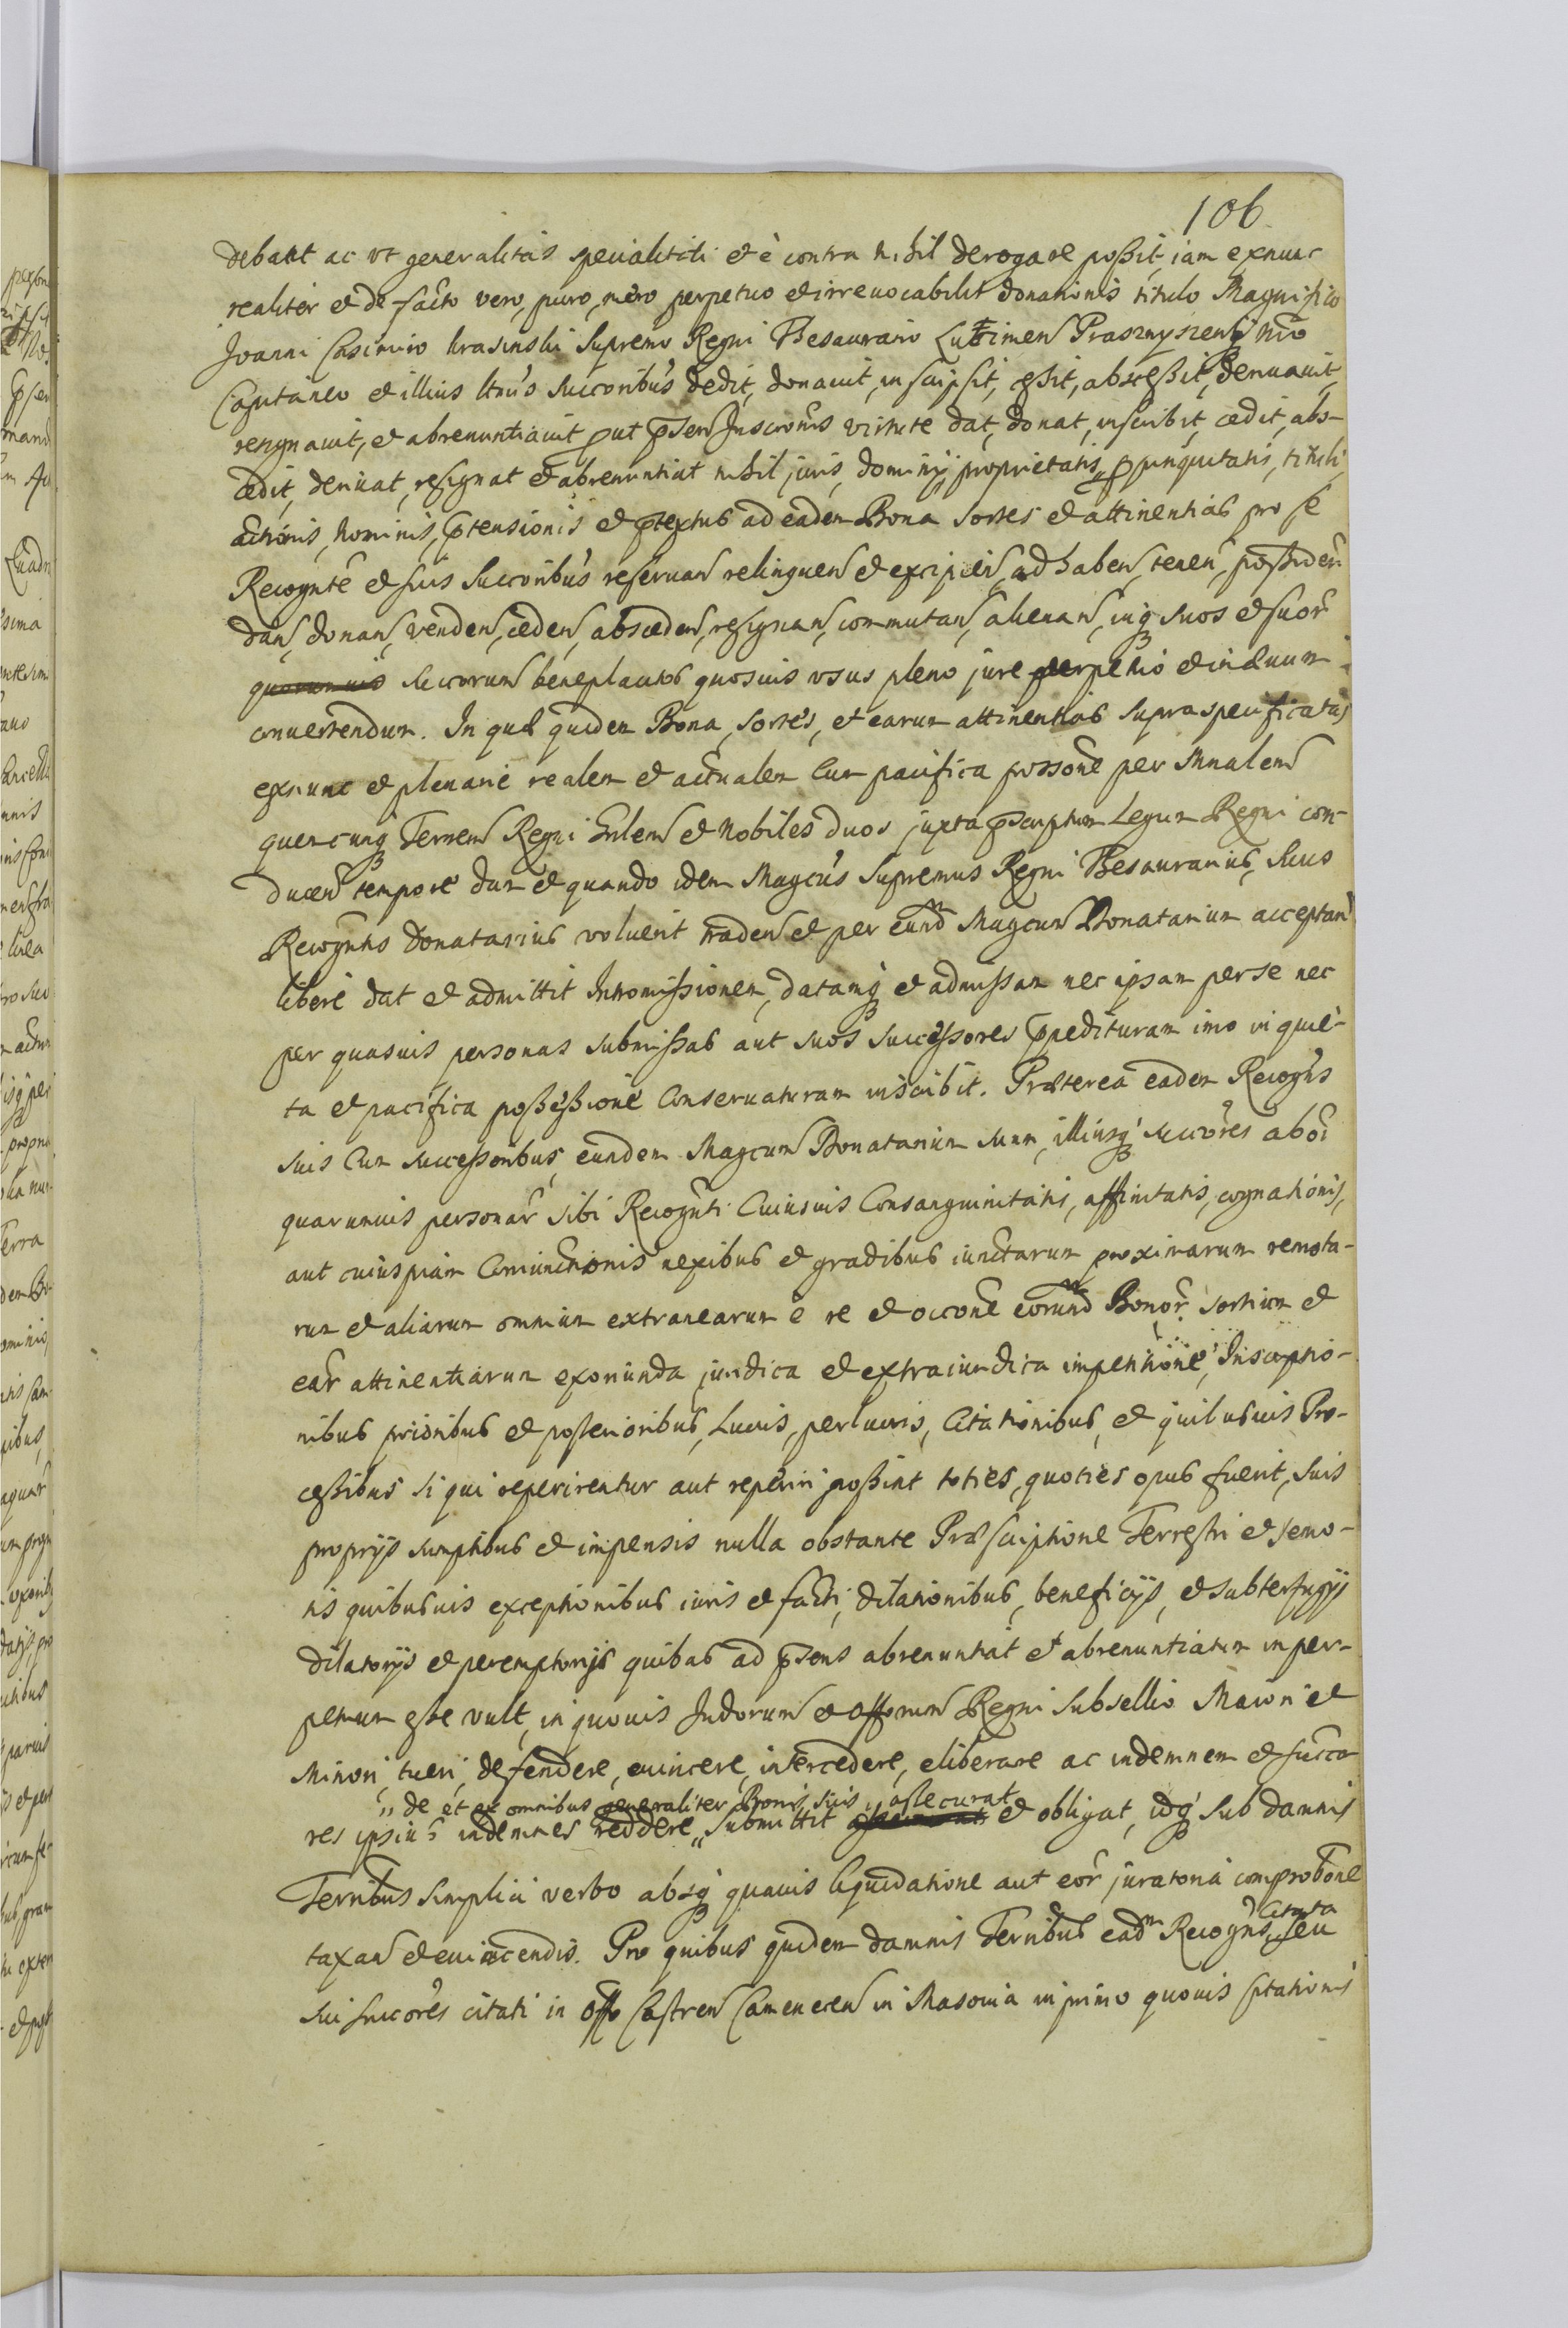 106
debant ac vt generalitas specialitati et è contra nihil derogare possit, iam exnunc
realiter et de facto vero, puro, mero perpetuo et irreuocabilit donationis titulo Magnifico
Joanni Casimiro Krasinski Supremo Regni Thesaurario Prasznyszensiq
Capitaneo et illius ltmis Succoribus dedit, donauit, inscripsit, cessit, abscessit, deriuauit,
resignauit, et abrenuntiauit put psen Inscronis virtute dat, donat, inscribit, cedit, abs-
cedit, deriuat, resignat et abrenuntiat nihil juris, dominij, proprietatis, ppinquitatis, tituli
actionis, hominis, ptensionis et ptextus ad eadem Bona Sortes et attinentias pro se
Recognte et suis Succoribus reseruan relinquen et excipien, ad haben, tenen, possiden
dan, donan, venden, ceden, absceden, resignan, commutan, alienan, inq suos et suor
quorumuis succorum beneplacitos quosuis vsus pleno jure perpetuo et in aeuum
conuertendum. In quae quidem Bona, Sortes, et earum attinentias supraspecificatas
exnunc et plenarie realem et actualem Cum pacifica possone per Mnalem
quemcunq Terren Regni Gnlem et Nobiles duos juxta pscriptum Legum Regni con-
ducen tempore dum et quando idem Magcus Supremus Regni Thesaurarius, Suus
Recogntis Donatarius voluerit traden et per eundm Magcum Donatarium acceptan
libere dat et admittit Intromissionem, datamq et admissam nec ipsam per se nec
per quasuis personas submissas aut suos Successores ppedituram imo in quie-
ta et pacifica possessione Conseruaturam inscribit. Praeterea eadem Recogns
suis Cum Successoribus, eundem Magcum Donatarium suum, illiusq succores ab oi
quarumuis personar sibi Recognti Cuiusuis Consanguinitatis, affinitatis, cognationis,
aut cuiuspiam Coniunctionis nexibus et gradibus iunctarum proximarum remota-
rum et aliarum omnium extranearum è re et occone eorundm Bonor, Sortium et
ear attinentiarum exoriunda juridica et extraiuridica impetitione, Inscriptio-
nibus prioribus et posterioribus, Lucris, perlucris, Citationibus, et quibusuis Pro-
cessibus si qui reperirentur aut reperiri possint toties, quoties opus fuerit, suis
proprijs sumptibus et impensis nulla obstante Praescriptione Terrestri et remo-
tis quibusuis exceptionibus iuris et facti, dilationibus, beneficijs, et subterfugijs
dilatorijs et peremptorijs quibus ad psens abrenuntiat et abrenuntiatum in per-
petuum esse vult, in quouis Judiorum et Offiorum Regni Subsellio Maiori et
Minori, tueri, defendere, euincere, intercedere, eliberare ac indemnem et succo
" de et ex omnibus generaliter Bonis suis " assecurat
res ipsius indemnes reddere " submittit et obligat, idq sub damnis
Terribus simplici verbo absq quauis liquidatione aut eor juratoria comprobone
taxan et euincendis. Pro quibus quidem damnis Terribus eadm Recogns, citata seu
sui succores citati in Offo Castren Camenecen in Masouia in primo quouis citationis